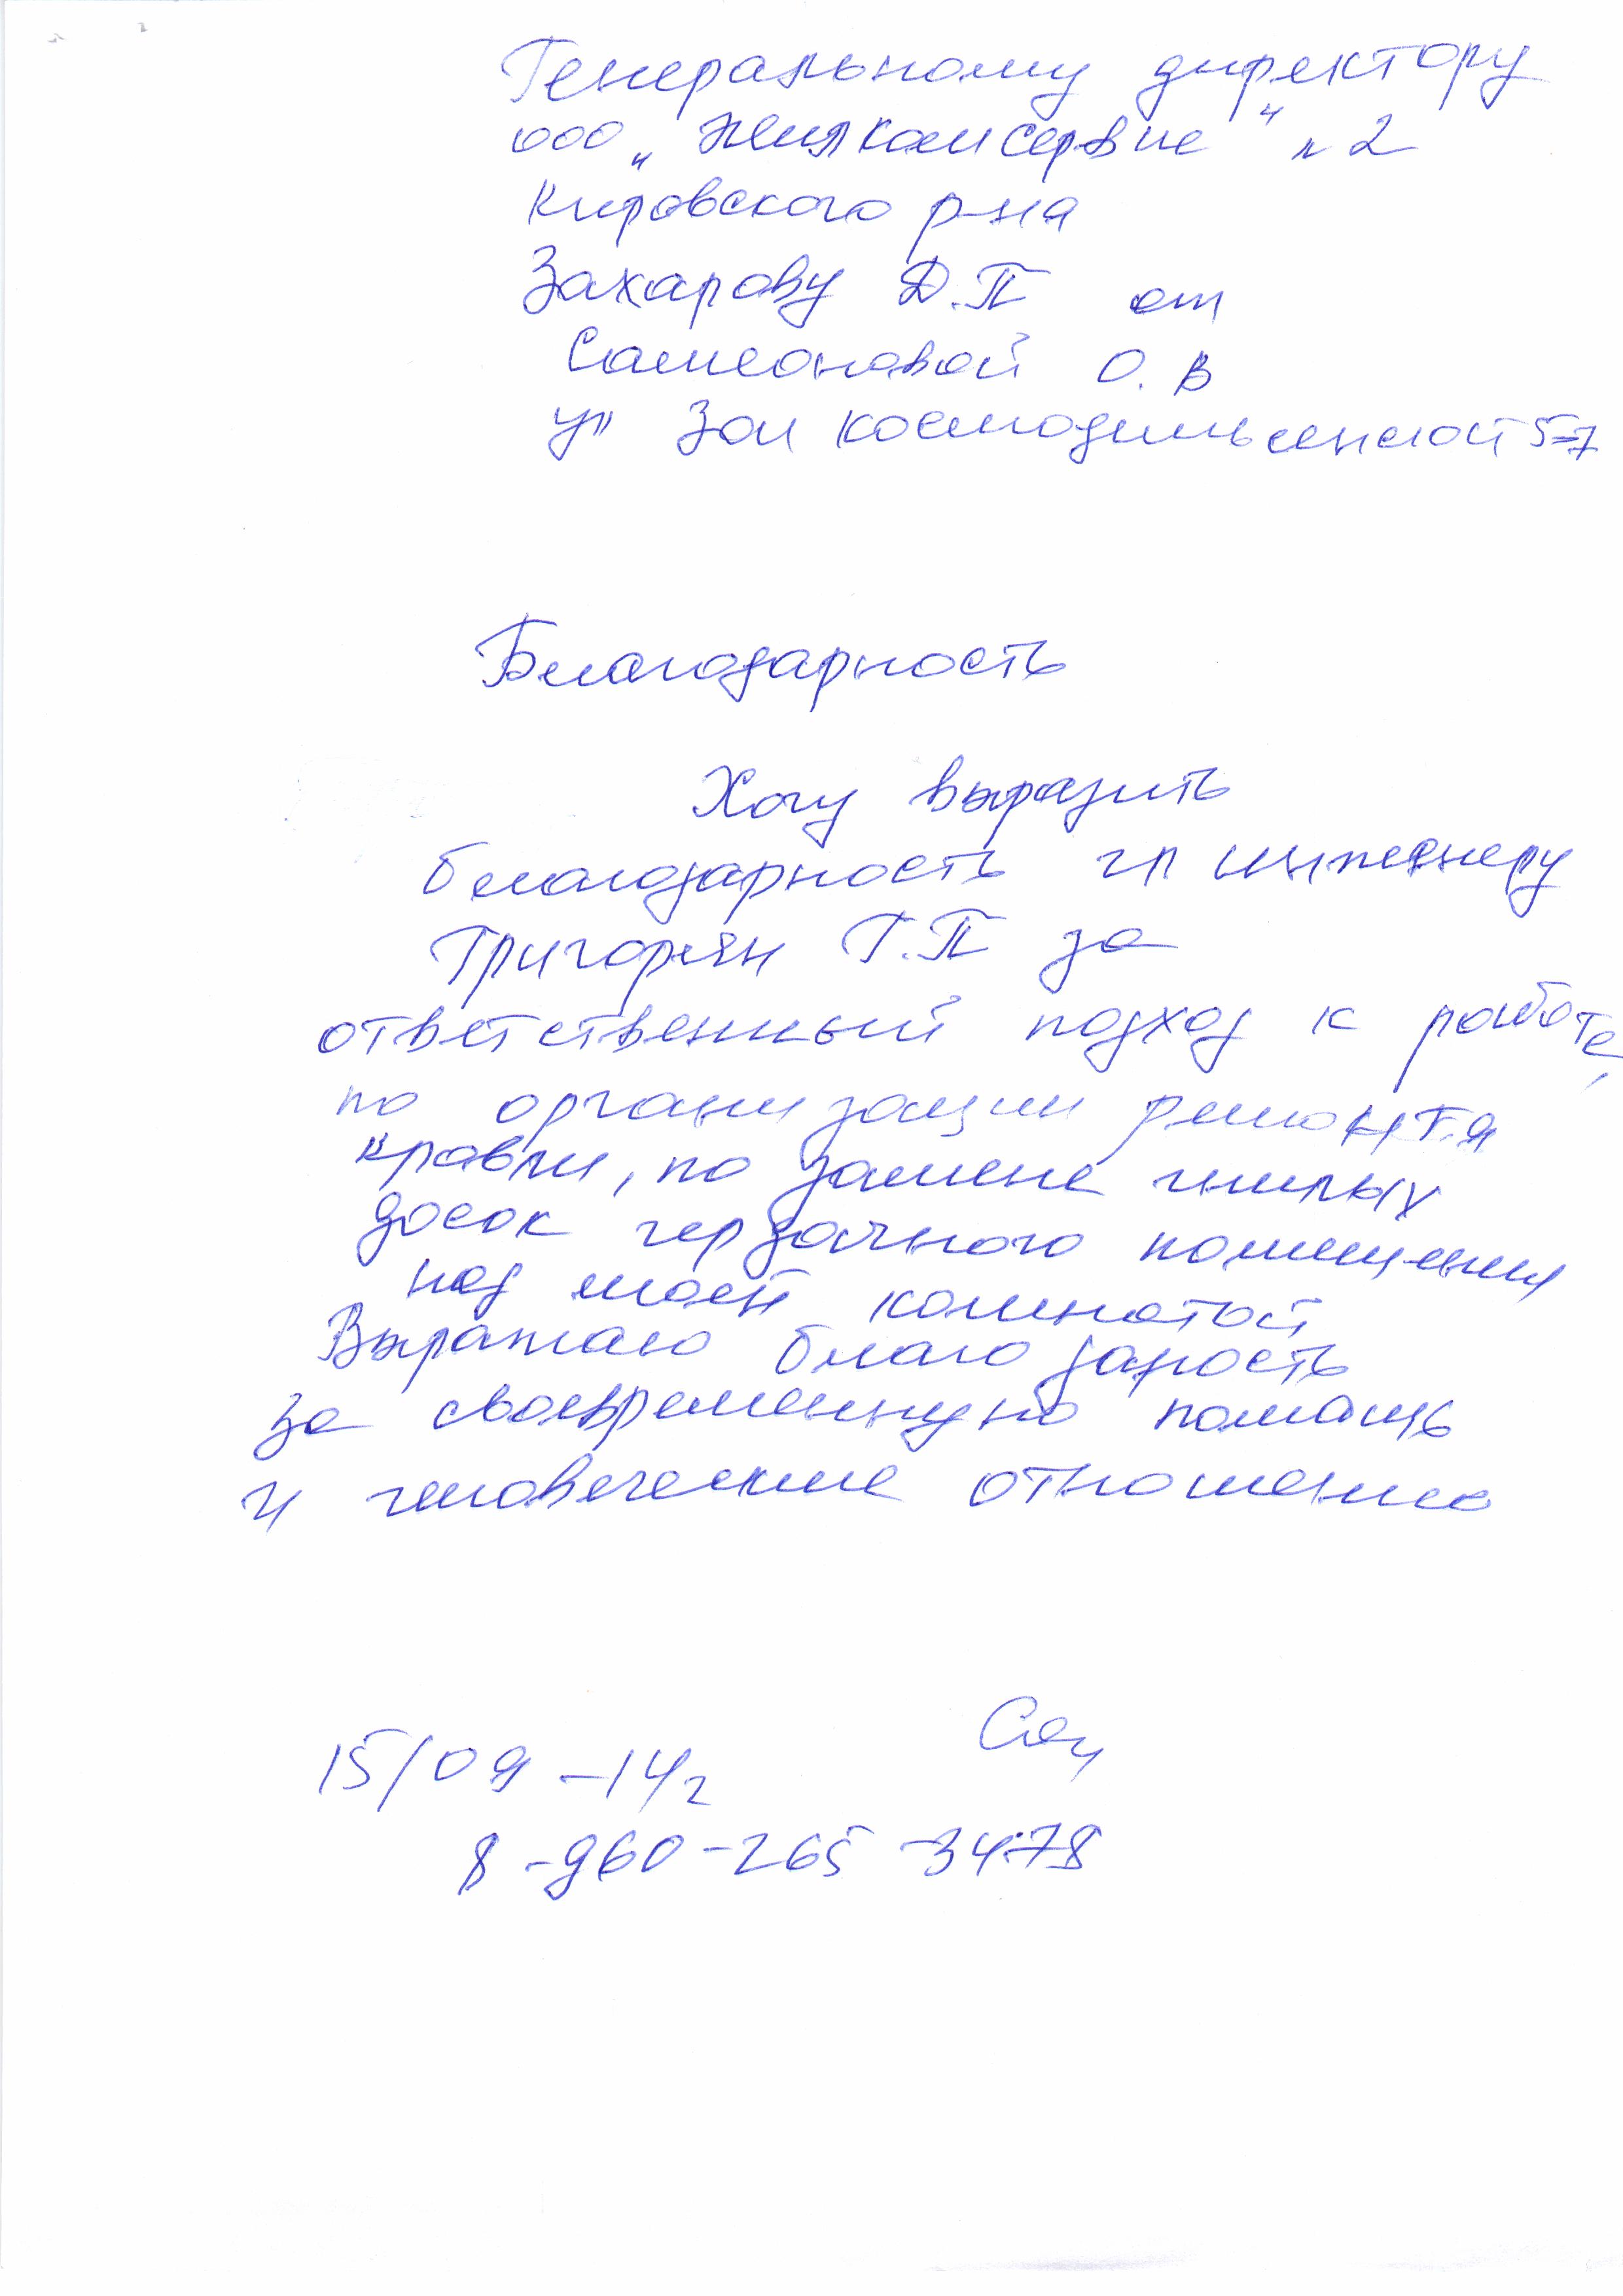 Генеральному директору
ООО „Жилкомсервис" n 2
Кировского р-на
Захарову Д.П от
Самсоновой О.В
ул Зои космодемьенской 5-7
Благодарность
Хочу выразить
благодарность гл инженеру
Григорян Г.П за
ответственный подход к работе,
по организации ремонта
кровли, по замене гнилых
досок чердачного помещения
над моей комнатой
Выражаю благодарость
за своевременную помощь
и человеческие отношение
15/09-14г
8-960-265-3478